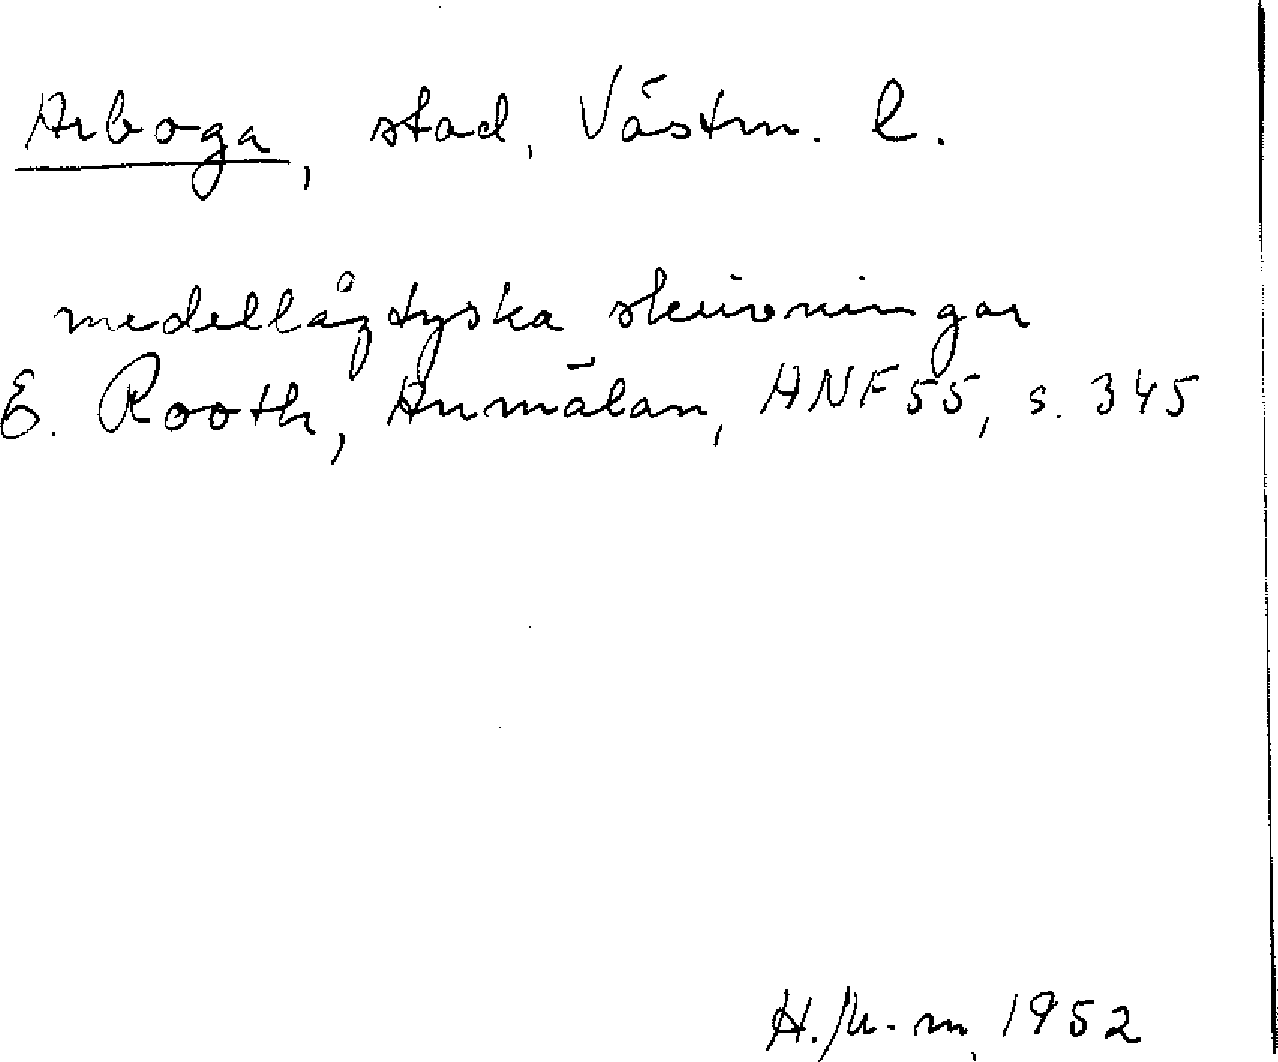 Arboga, stad, Västm. l.
medellågtyska skrivningar
E. Rooth, Anmälan, ANF 55, s. 345
H. M-m, 1952